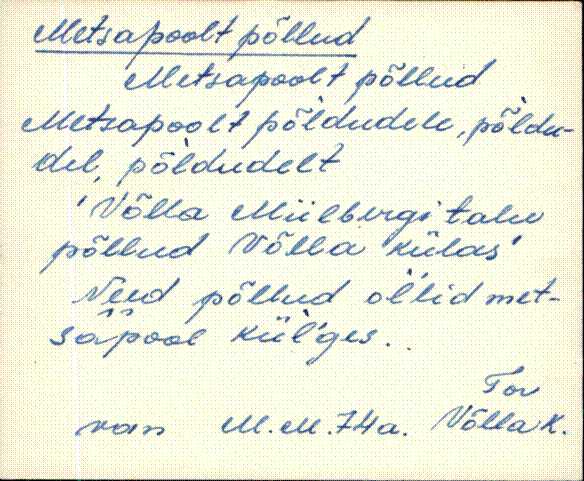 Metsapoolt põllud
Metsapoolt põllud
Metsapoolt põldudele, põldu-
del, põldudelt
'Võlla Miilbergi talu
põllud Võlla külas'
Need põllud ol'lid met-
sapool kül'ges.
Tor
van M.M. 74a. Võlla k.